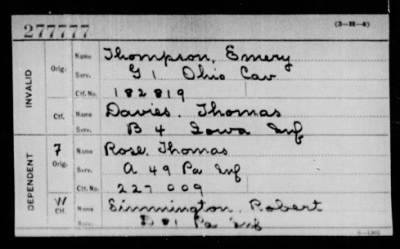 277777
(3-H-4)
INVALID
Orig.
Name Thompson, Emery
Serv. G 1 Ohio Cav
Ctf. No. 182819
Ctf.
Name Davies, Thomas
Serv. B 4 Iowa Inf
DEPENDENT
7
Orig.
Name Rose, Thomas
Serv. A 49 Pa Inf
Ctf. No. 227009
W
Ctf.
Name Simmington, Robert
Serv. 81 Pa Inf